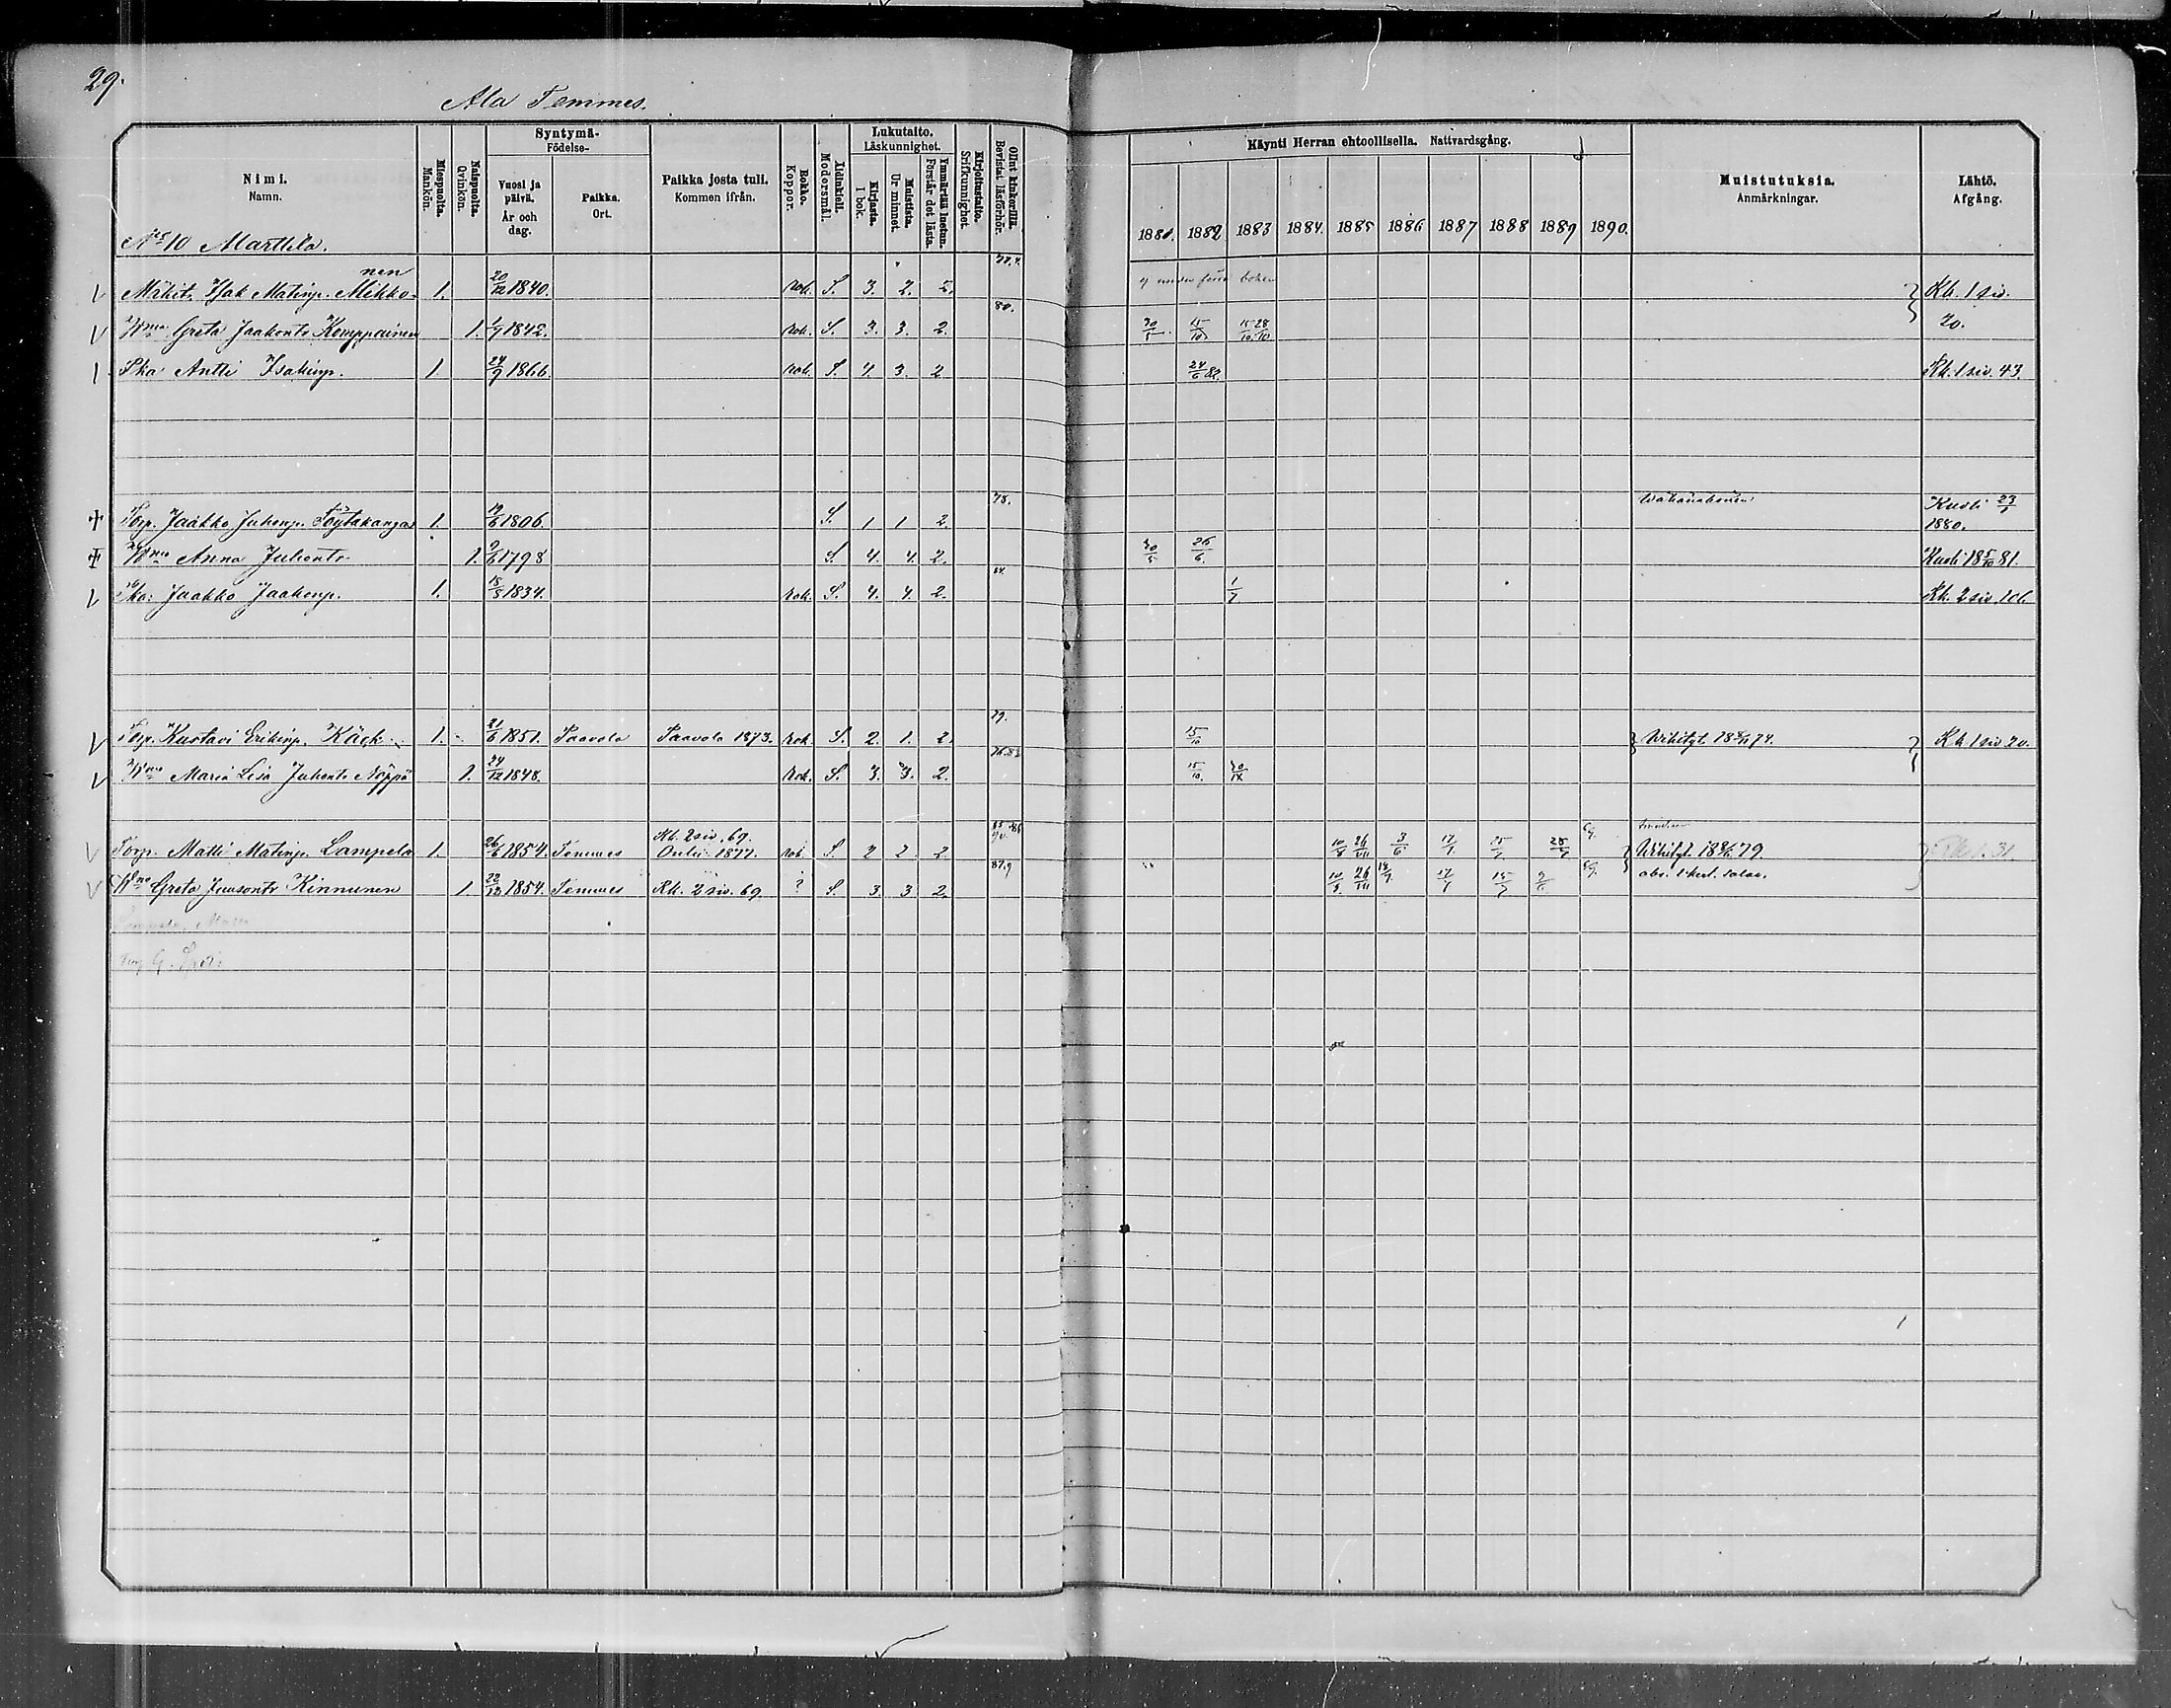 29.
Ala Temmes.
Nimi.
Namn.
Miespuolta.
Mankön.
Naispuolta.
Qvinkön.
Syntymä-
Födelse-
Vuosi ja päivä.
År och dag.
Paikka.
Ort.
Paikka josta tuli.
Kommen ifrån.
Rokko.
Koppor.
Äidinkieli.
Modersmål.
Lukutaito.
Läskunnighet.
Kirjasta.
I bok.
Muistista.
Ur minnet
Ymmärtää luetun.
Förstår det lästa.
Kirjoitustaito.
Skrifkunnighet.
Ollut kinkerillä.
Bevistat läsförhör.
Käynti Herran ehtoollisella. Nattvardsgång.
1881. 1882 1883 1884. 1885 1886 1887 1888 1889 1890.
Muistutuksia.
Anmärkningar.
Lähtö.
Afgång.
No 10 Marttila.
Mäkit. Isak Matinp. Mikkonen 1. 20/12 1840. rok. S. 3. 2. 2. Kk. 1 siv.
Wmo Greta Jaakontr Kemppainen 1. 1/9 1842. rok. S. 3. 3. 2. 80. 30/5. 15/10 15/10 28/10 20.
Pka Antti Isakinp. 1 24/9 1866 rok. S. 4. 3. 2 24/6 82. Kk. 1 siv. 43.
Torp. Jaakko Juhonp. Töytäkangas 1. 19/6 1806. S. 1 1 2. 78. Kuoli 23/1 1880.
Wmo Anna Juhontr 1. 9/6 1798 S. 4. 4. 2. 30/5 26/6. Kuoli 18 5/10 81.
Pka: Jaakko Jaakonp. 1. 18/5 1834. rok. S. 4. 4. 2. 84. 1/7 Kk. 2 siv. 106.
Torp. Kustavi Erikinp. Käck 1. 21/6 1851. Paavola Paavola 1873. rok. S. 2. 1. 2. 79. 15/10 Wihityt 18 74. Kk 1 siv 20.
Wmo Maria Lisa Juhontr Nöppä 1. 24/12 1848. rok. S. 3. 3. 2. 15/10. 30/IX
Torp. Matti Matinp. Lampela 1. 26/6 1854. Temmes Kk. 2 siv. 69. Oulu 1877. rok. S. 2 2 2. 10/8 26/VII 3/6 17/7 15/7 28/7 Wihityt 18 79.
Wmo Greta Juusontr Kinnunen 1. 22/12 1854. Temmes Rk. 2 siv. 69. ? S. 3. 3 2. 87.9 10/8. 26/VII 17/7 15/7